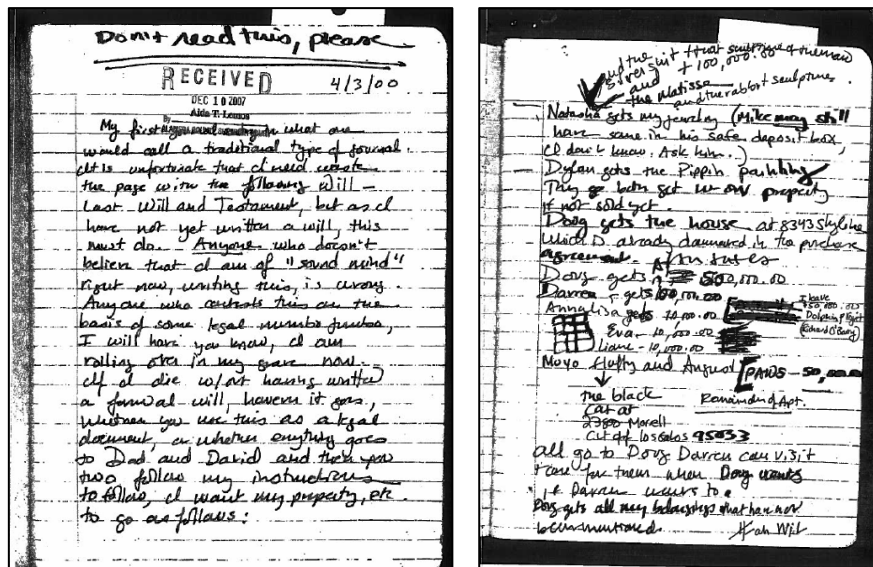 Don't read this, please.
RECEIVED
4/3/00
DEC 10 2007
By Aida T. Lemos
My first in what one
would call a traditional type of journal.
It is unfortunate that I need waste
the page with the following will –
Last Will and Testament, but as I
have not yet written a will, this
must do. Anyone who doesn't
believe that I am of "sound mind"
right now, writing this, is wrong.
Anyone who contests this on the
basis of some legal mumbo jumbo,
I will have you know, I am
rolling over in my grave now.
If I die w/out having written
a formal will, however it goes,
whether you use this as a legal
document, or whether everything goes
to Dad and David and then you
two follow my instructions
to follow, I want my property, etc.
to go as follows:
and the
silver suit that
+ 100,000.00
and
the Matisse
and the rabbit sculptures.
Natasha gets my jewelry (Mike may still
have some in his safe deposit box,
I don't know. Ask him.)
Dylan gets the Pippin painting
They go both get property
if not sold yet.
Doug gets the house at 8343 Skyline
which is already in the purchase
agreement.
Doug gets 500,000.00
Darren gets 100,000.00
Annalisa gets 10,000.00
I leave
$50,000.00
Dolphin Project
(Richard O'Barry)
Eva - 10,000.00
Liane - 10,000.00
Moyo Fluffy and Angus
PAWS - 50,000
Remainder of Apt.
the black
cat at
Morell
Cut off Los Gatos 95033
all go to Doug Darren can visit
+ care for them when Doug wants
if Darren wants to.
Doug gets all my belongings that have not
been mentioned.